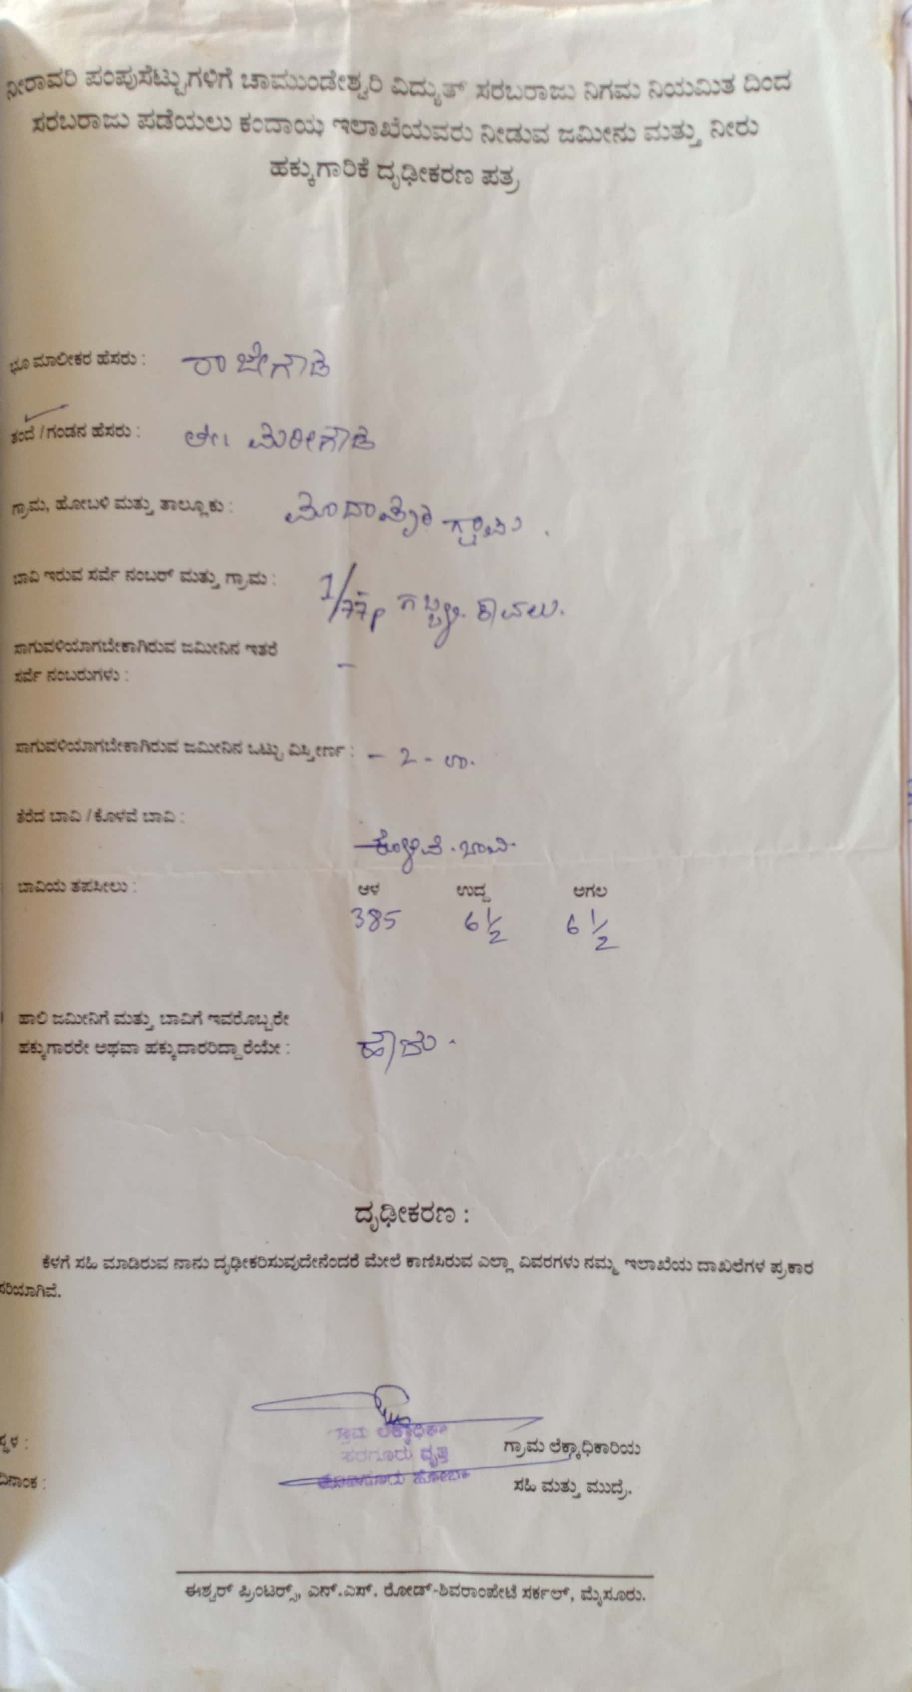 ನೀರಾವರಿ ಪಂಪುಸೆಟ್ಟುಗಳಿಗೆ ಚಾಮುಂಡೇಶ್ವರಿ ವಿದ್ಯುತ್ ಸರಬರಾಜು ನಿಗಮ ನಿಯಮಿತ ದಿಂದ
ಸರಬರಾಜು ಪಡೆಯಲು ಕಂದಾಯ ಇಲಾಖೆಯವರು ನೀಡುವ ಜಮೀನು ಮತ್ತು ನೀರು
ಹಕ್ಕುಗಾರಿಕೆ ದೃಢೀಕರಣ ಪತ್ರ
ಭೂ ಮಾಲೀಕರ ಹೆಸರು : ರಾಜೇಗೌಡ
ತಂದೆ / ಗಂಡನ ಹೆಸರು :
ಗ್ರಾಮ, ಹೋಬಳಿ ಮತ್ತು ತಾಲ್ಲೂಕು : ಗ್ರಾಮ .
ಬಾವಿ ಇರುವ ಸರ್ವೆ ನಂಬರ್ ಮತ್ತು ಗ್ರಾಮ : 1/77p ಕಾವಲು.
ಸಾಗುವಳಿಯಾಗಬೇಕಾಗಿರುವ ಜಮೀನಿನ ಇತರೆ
ಸರ್ವೆ ನಂಬರುಗಳು : –
ಸಾಗುವಳಿಯಾಗಬೇಕಾಗಿರುವ ಜಮೀನಿನ ಒಟ್ಟು ವಿಸ್ತೀರ್ಣ : – 2 -
ತೆರೆದ ಬಾವಿ / ಕೊಳವೆ ಬಾವಿ :
ಕೊಳವೆ . ಬಾವಿ.
ಬಾವಿಯ ತಪಸೀಲು : ಆಳ ಉದ್ದ ಅಗಲ
385 6 1/2 6 1/2
ಹಾಲಿ ಜಮೀನಿಗೆ ಮತ್ತು ಬಾವಿಗೆ ಇವರೊಬ್ಬರೇ
ಹಕ್ಕುಗಾರರೇ ಅಥವಾ ಹಕ್ಕುದಾರರಿದ್ದಾರೆಯೇ : ಹೌದು .
ದೃಢೀಕರಣ :
ಕೆಳಗೆ ಸಹಿ ಮಾಡಿರುವ ನಾನು ದೃಢೀಕರಿಸುವುದೇನೆಂದರೆ ಮೇಲೆ ಕಾಣಿಸಿರುವ ಎಲ್ಲಾ ವಿವರಗಳು ನಮ್ಮ ಇಲಾಖೆಯ ದಾಖಲೆಗಳ ಪ್ರಕಾರ
ಸರಿಯಾಗಿವೆ.
ಗ್ರಾಮ ಲೆಕ್ಕಾಧಿಕಾರಿ
ವೃತ್ತಿ
ಸ್ಥಳ : ಗ್ರಾಮ ಲೆಕ್ಕಾಧಿಕಾರಿಯ
ದಿನಾಂಕ : ಸಹಿ ಮತ್ತು ಮುದ್ರೆ.
ಈಶ್ವರ್ ಪ್ರಿಂಟರ್ಸ್, ಎನ್.ಎಸ್. ರೋಡ್-ಶಿವರಾಂಪೇಟೆ ಸರ್ಕಲ್, ಮೈಸೂರು.